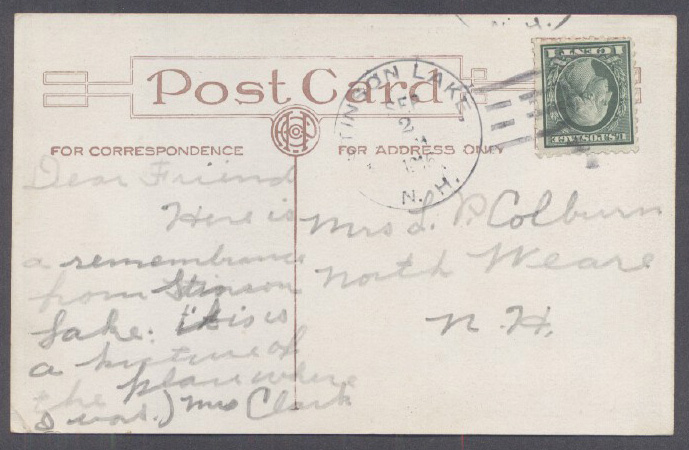 Post Card
STINSON LAKE,
SEP
2
N. H.
1 CENT 1
U.S. POSTAGE
FOR CORRESPONDENCE
FOR ADDRESS ONLY
Dear Friend
Here is
a remembrance
from Stinson
Lake. (this is
a picture of
the place where
I was.) Mrs Clark
Mrs L. P. Colburn
North Weare
N. H.